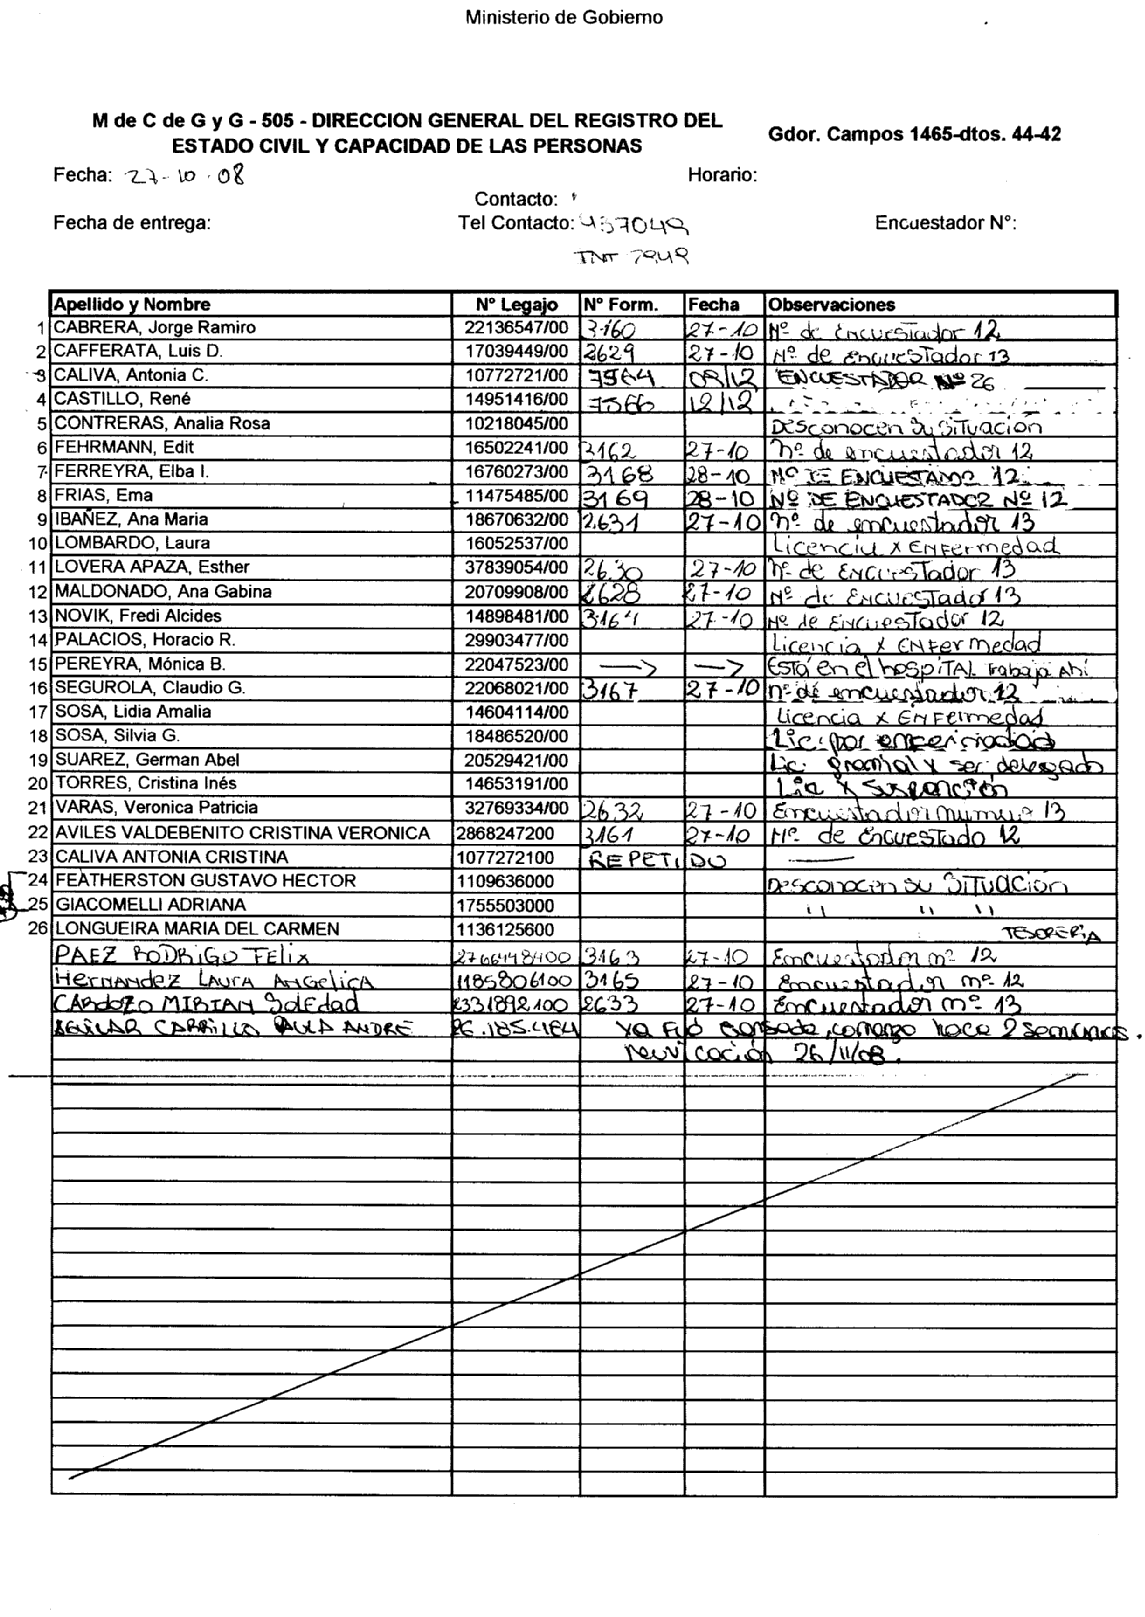 Ministerio de Gobierno
M de C de G y G - 505 - DIRECCION GENERAL DEL REGISTRO DEL
ESTADO CIVIL Y CAPACIDAD DE LAS PERSONAS
Gdor. Campos 1465-dtos. 44-42
Fecha: 27-10-08 Horario:
Contacto:
Fecha de entrega: Tel Contacto: 437049 Encuestador N°:
INT 7949
Apellido y Nombre N° Legajo N° Form. Fecha Observaciones
1 CABRERA, Jorge Ramiro 22136547/00 3160 27-10 Nº de Encuestador 12
2 CAFFERATA, Luis D. 17039449/00 2629 27-10 Nº de encuestador 13
3 CALIVA, Antonia C. 10772721/00 7564 09/12 ENCUESTADOR Nº 26
4 CASTILLO, René 14951416/00 7566 12/12
5 CONTRERAS, Analia Rosa 10218045/00 Desconocen su situación
6 FEHRMANN, Edit 16502241/00 3162 27-10 nº de encuestador 12
7 FERREYRA, Elba I. 16760273/00 3168 28-10 Nº DE ENCUESTADOR 12
8 FRIAS, Ema 11475485/00 3169 28-10 Nº DE ENCUESTADOR Nº 12
9 IBAÑEZ, Ana Maria 18670632/00 2631 27-10 nº de encuestador 13
10 LOMBARDO, Laura 16052537/00 Licencia x Enfermedad
11 LOVERA APAZA, Esther 37839054/00 2630 27-10 Nº de Encuestador 13
12 MALDONADO, Ana Gabina 20709908/00 2628 27-10 Nº de Encuestador 13
13 NOVIK, Fredi Alcides 14898481/00 3164 27-10 Nº de Encuestador 12
14 PALACIOS, Horacio R. 29903477/00 Licencia x Enfermedad
15 PEREYRA, Mónica B. 22047523/00 → → Está en el hospital trabaja Ahí
16 SEGUROLA, Claudio G. 22068021/00 3167 27-10 nº de encuestador 12
17 SOSA, Lidia Amalia 14604114/00 Licencia x Enfermedad
18 SOSA, Silvia G. 18486520/00 Lic. por enfermedad
19 SUAREZ, German Abel 20529421/00 Lic. gremial x ser delegado
20 TORRES, Cristina Inés 14653191/00 Lic x Suspención
21 VARAS, Veronica Patricia 32769334/00 2632 27-10 Encuestador numero 13
22 AVILES VALDEBENITO CRISTINA VERONICA 2868247200 3161 27-10 Nº de Encuestado 12
23 CALIVA ANTONIA CRISTINA 1077272100 REPETIDO
24 FEATHERSTON GUSTAVO HECTOR 1109636000 Desconocen su Situación
25 GIACOMELLI ADRIANA 1755503000 " " "
26 LONGUEIRA MARIA DEL CARMEN 1136125600 TESORERIA
PAEZ RODRIGO FELIX 2766448400 3163 27-10 Encuestador nº 12
Hernandez Laura Angelica 1185806100 3165 27-10 Encuestador nº 12
CARDOZO MIRIAN Soledad 2331892100 2633 27-10 Encuestador nº 13
AGUILAR CARRILLO PAULA ANDRE 26.185.464 Ya fué censada, comenzo hace 2 semanas.
26/11/08.